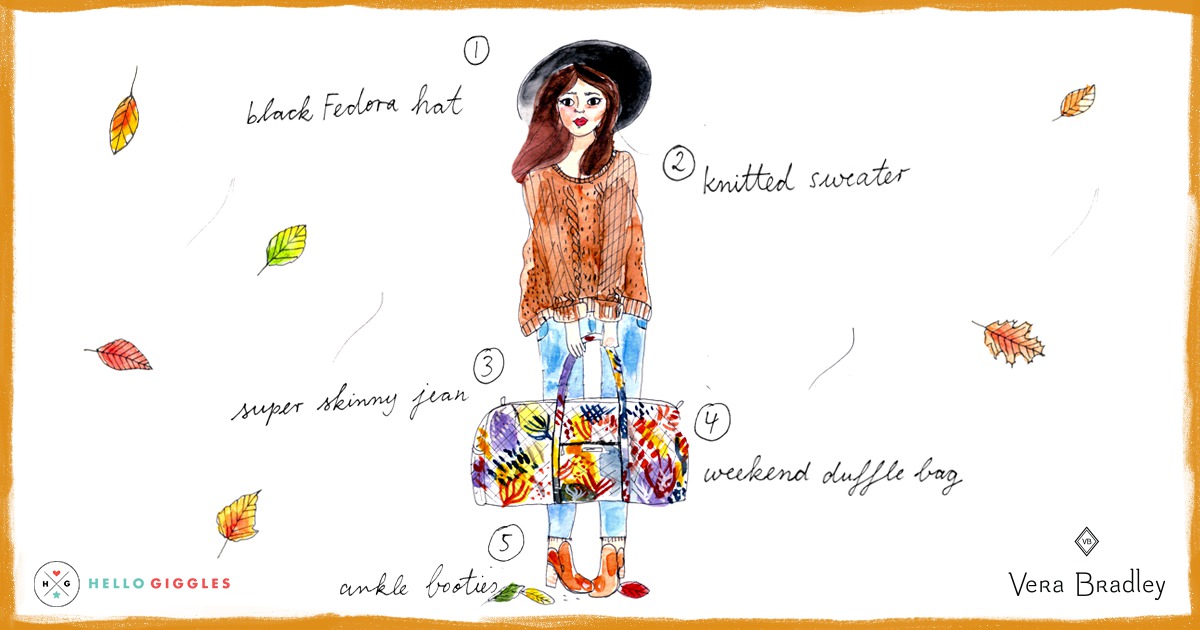 1
black Fedora hat
2
knitted sweater
3
super skinny jean
4
weekend duffle bag
5
ankle booties
H G
HELLO GIGGLES
VB
Vera Bradley